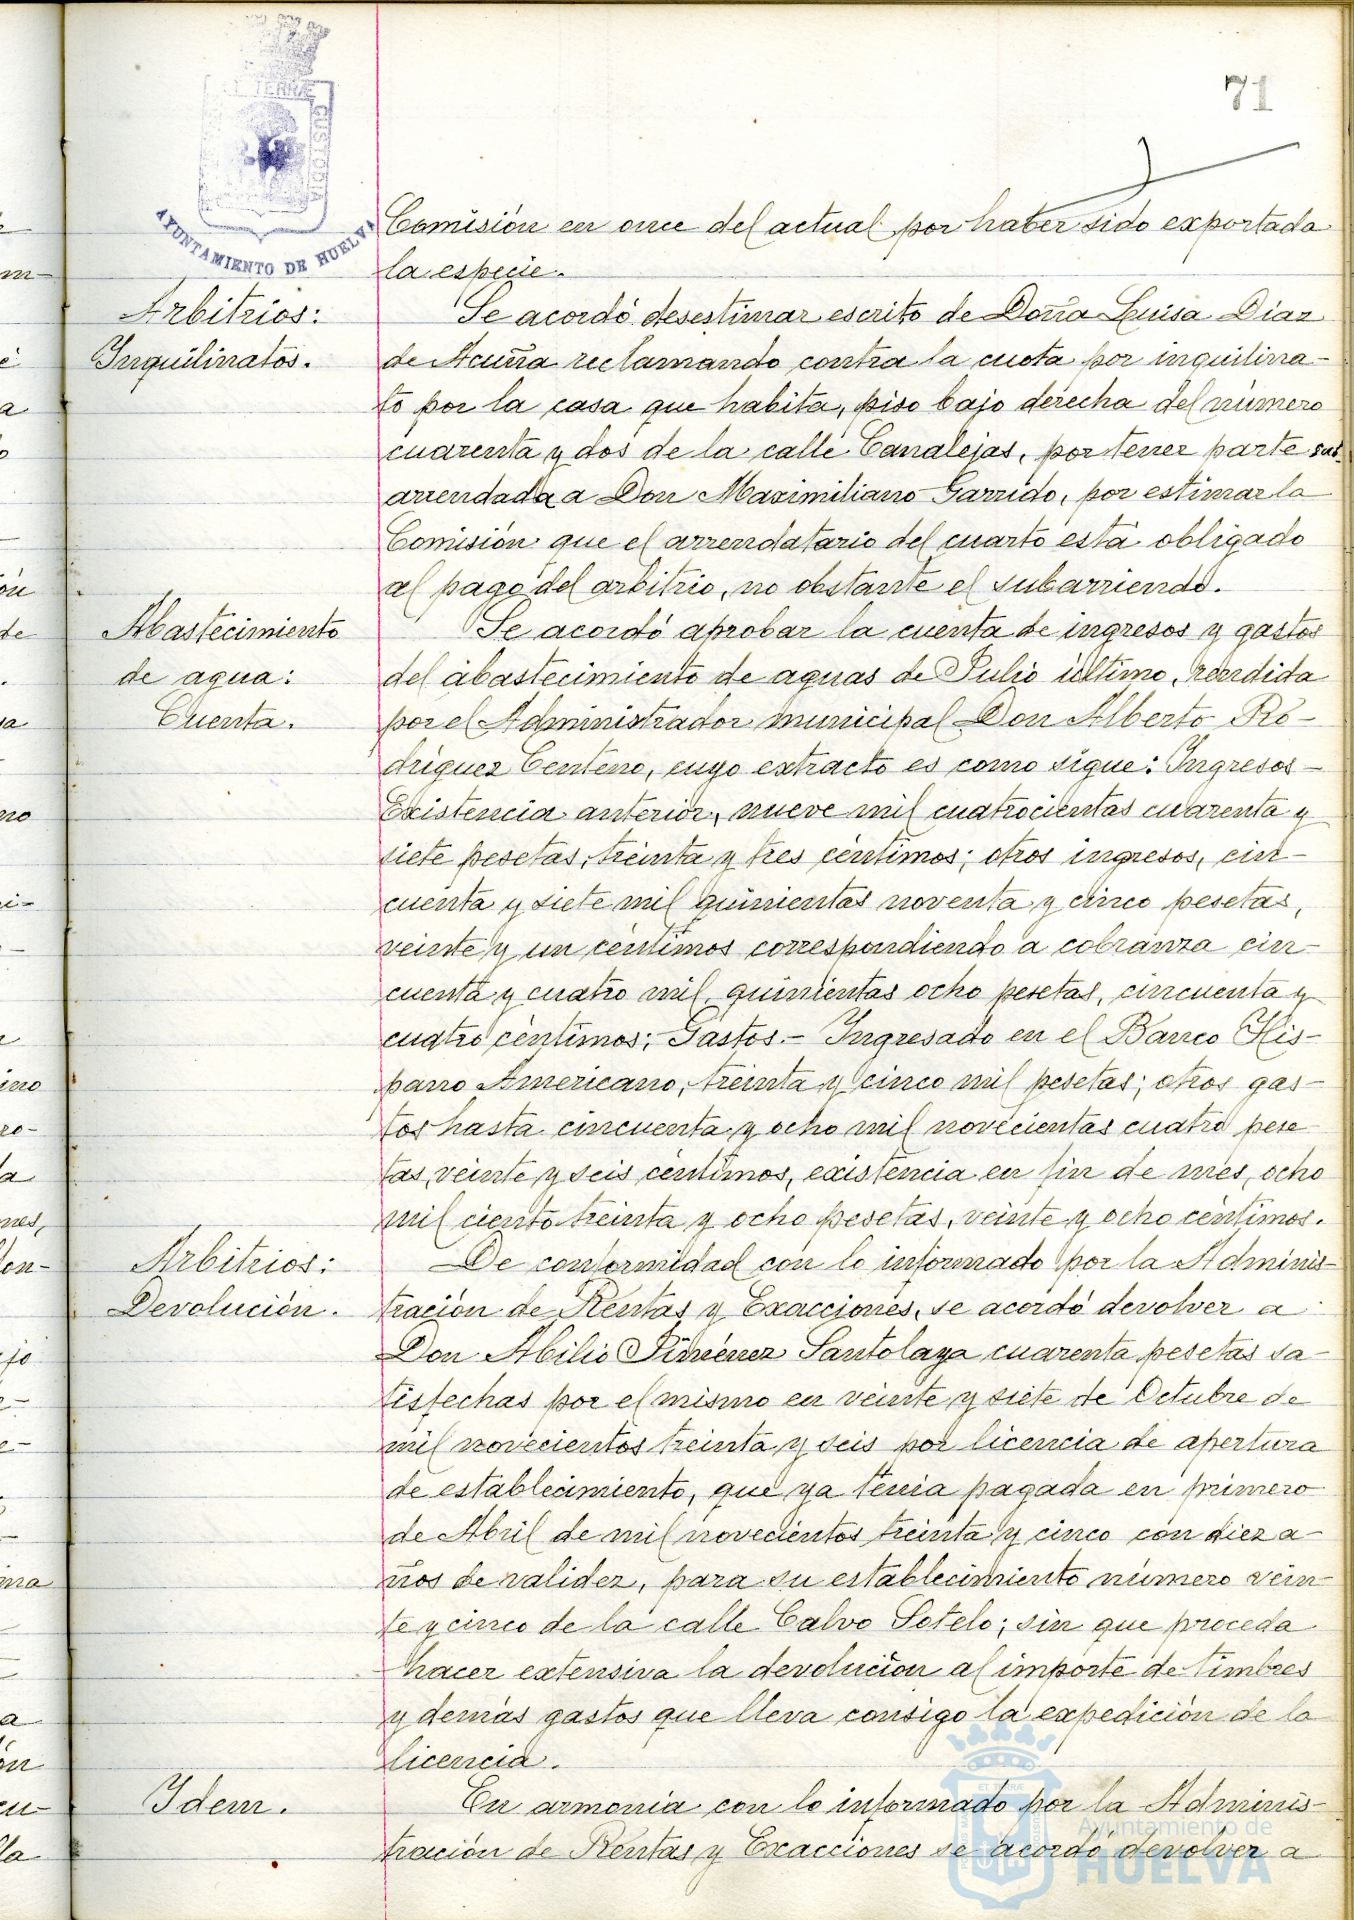 71
ET TERRÆ
CUSTODIA
AYUNTAMIENTO DE HUELVA
Comisión en once del actual por haber sido exportada
la especie.
Arbitrios:
Inquilinatos.
Se acordó desestimar escrito de Doña Luisa Díaz
de Acuña reclamando contra la cuota por inquilina-
to por la casa que habita, piso bajo derecha del número
cuarenta y dos de la calle Canalejas, por tener parte sub-
arrendada a Don Maximiliano Garrido, por estimar la
Comisión que el arrendatario del cuarto está obligado
al pago del arbitrio, no obstante el subarriendo.
Abastecimiento
de agua:
Cuenta.
Se acordó aprobar la cuenta de ingresos y gastos
del abastecimiento de aguas de Julio último, rendida
por el Administrador municipal Don Alberto Ro-
dríguez Centeno, cuyo extracto es como sigue: Ingresos-
Existencia anterior, nueve mil cuatrocientas cuarenta y
siete pesetas, treinta y tres céntimos; otros ingresos, cin-
cuenta y siete mil quinientas noventa y cinco pesetas,
veinte y un céntimos correspondiendo a cobranza cin-
cuenta y cuatro mil, quinientas ocho pesetas, cincuenta y
cuatro céntimos; Gastos.- Ingresado en el Banco His-
pano Americano, treinta y cinco mil pesetas; otros gas-
tos hasta cincuenta y ocho mil novecientas cuatro pese-
tas, veinte y seis céntimos, existencia en fin de mes, ocho
mil ciento treinta y ocho pesetas, veinte y ocho céntimos.
Arbitrios:
Devolución.
De conformidad con lo informado por la Adminis-
tración de Rentas y Exacciones, se acordó devolver a
Don Abilio Jiménez Santolaya cuarenta pesetas sa-
tisfechas por el mismo en veinte y siete de Octubre de
mil novecientos treinta y seis por licencia de apertura
de establecimiento, que ya tenia pagada en primero
de Abril de mil novecientos treinta y cinco con diez a-
ños de validez, para su establecimiento número vein-
te y cinco de la calle Calvo Sotelo; sin que proceda
hacer extensiva la devolución al importe de timbres
y demás gastos que lleva consigo la expedición de la
licencia.
Idem.
En armonía con lo informado por la Adminis-
tración de Rentas y Exacciones se acordó devolver a
Ayuntamiento de
HUELVA